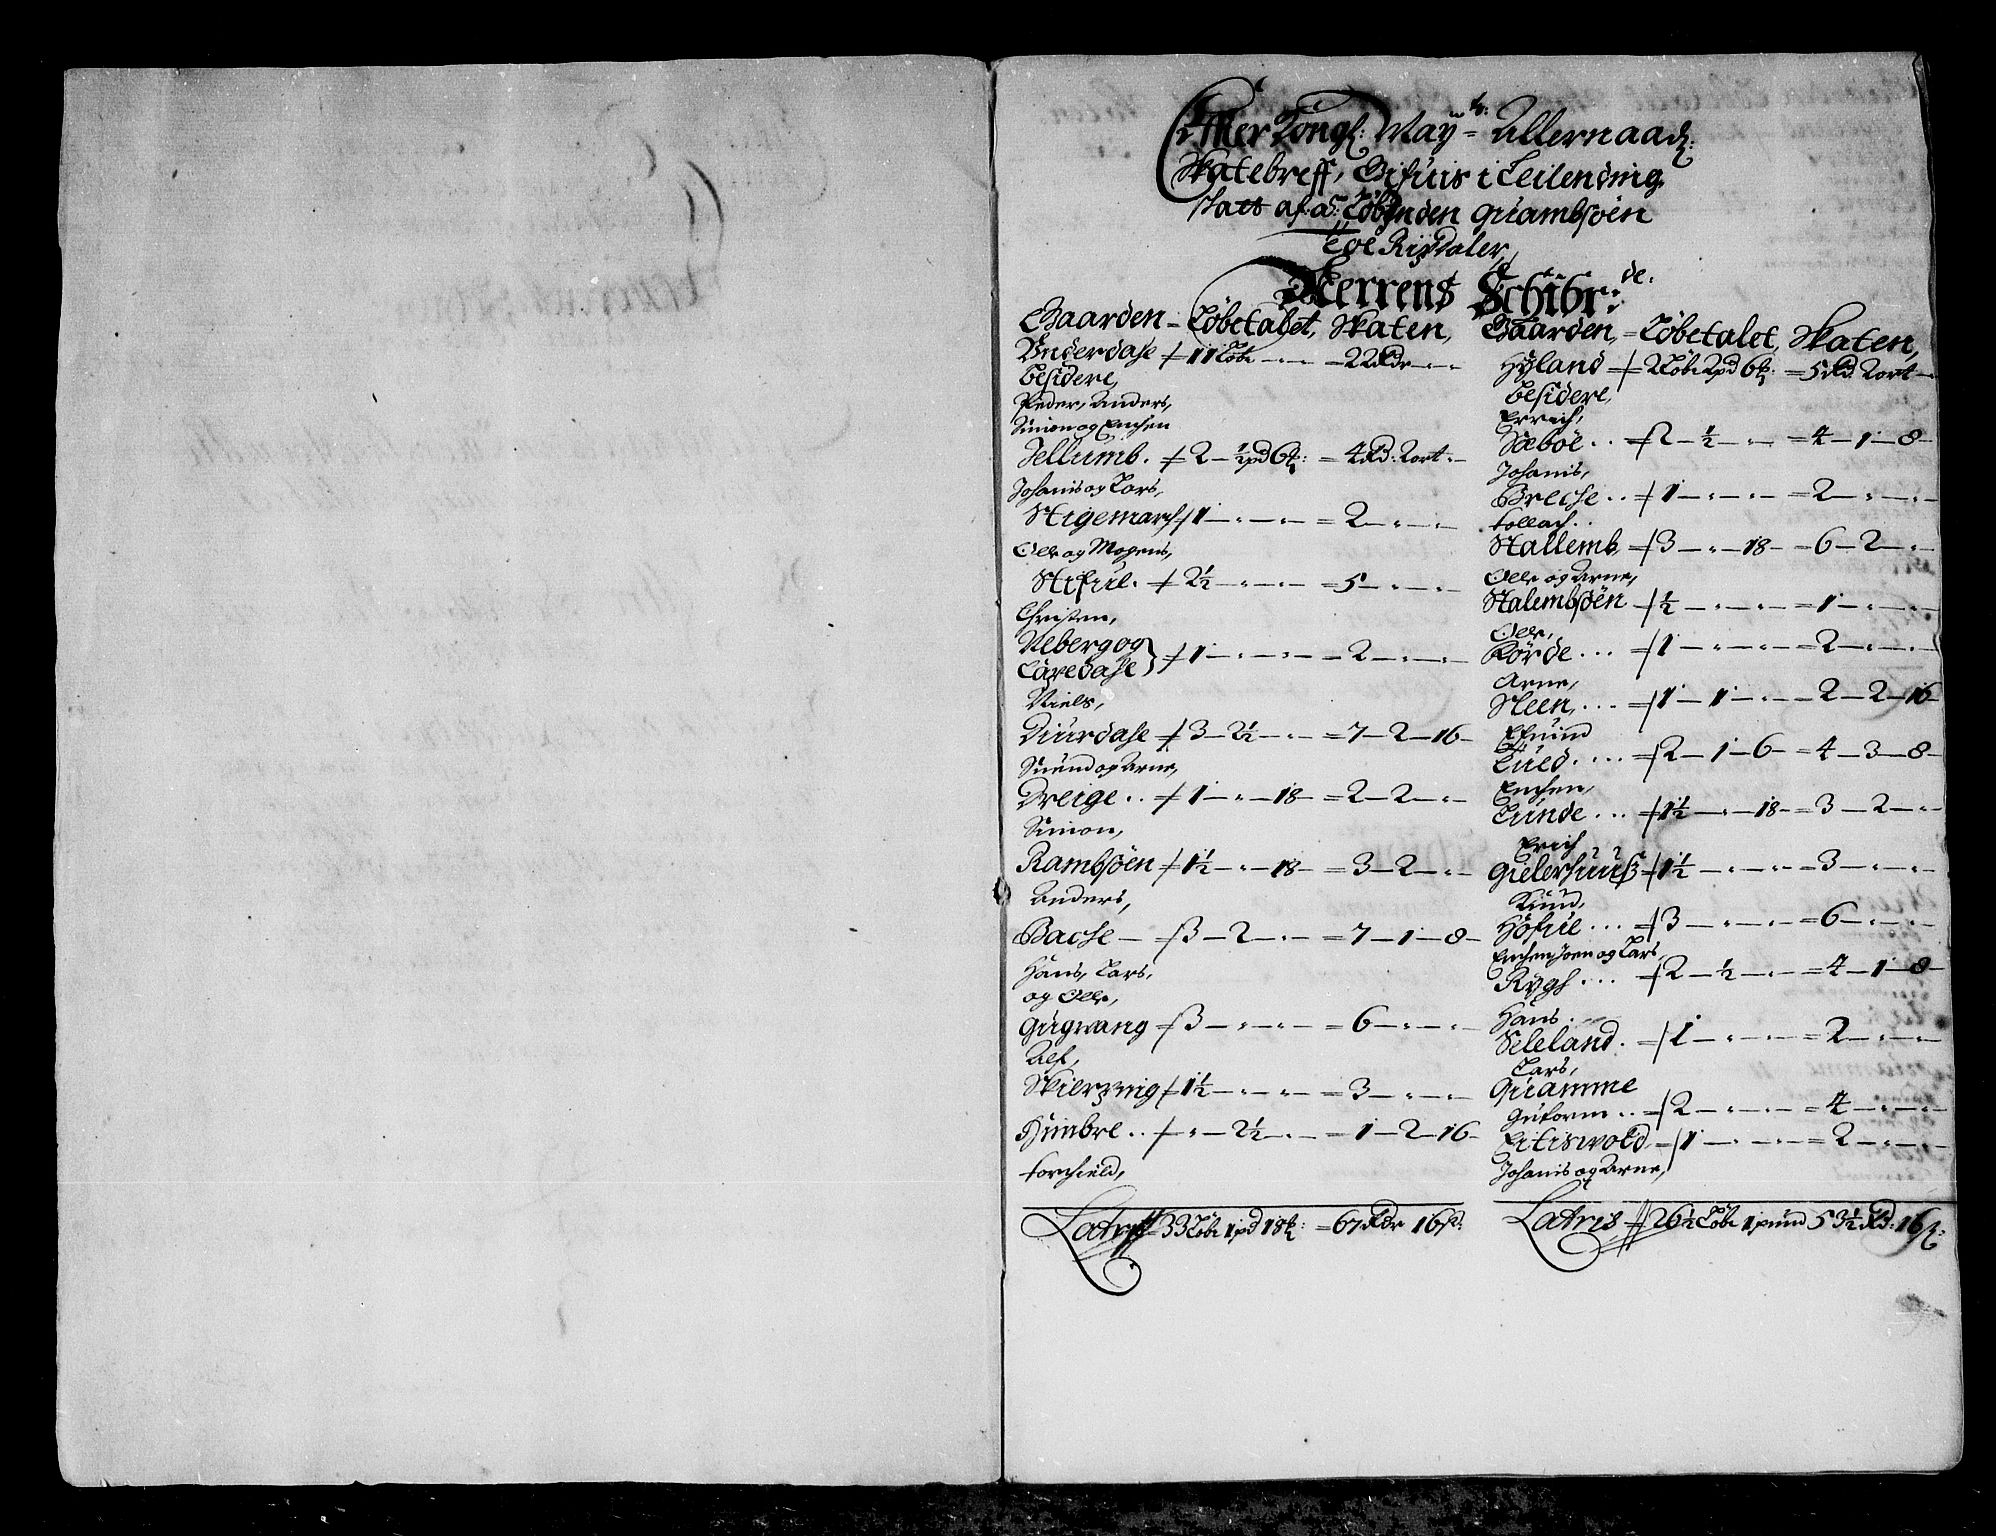 Effter Kongl: May:tz: Allernaad:
Skatebreff, Gifuis i Leilending
skatt af a: Løb, en den quambsøen
toe Rixdaler,
Herrens Schibr:de:
Gaarden = Løbetalet, Skaten,
Underdahl + 11 Løbe - - - = 22 Rdr - -
Besidere,
Peder, Anders,
Simon og Enchen
Tellumb. + 2 - ½ pd 6 = 4 Rd: 2 ort -
Johanis og Lars,
Stigemarch + 1 - - - = 2 - - -
Olle og Mogens,
Stifuel. + 2½ - - - = 5 - - -
Christen,
Neberg og
Laxedahl } + 1 - - - = 2 - - -
Niels,
Diurdahl + 3 - 2½ - - = 7 - 2 - 16 -
Suend og Arne,
Dreige .. + 1 - - 18 = 2 - 2 - -
Simon,
Rambsøen + 1½ - - 18 = 3 - 2 - -
Anders,
Bache - + 3 - 2 - - = 7 - 1 - 8 -
Hans, Lars,
og Olle,
Gugwang + 3 - - - = 6 - - -
Alf,
Skierping + 1½ - - - = 3 - - -
Dimbre .. + - 2½ - - = 1 - 2 - 16 -
Torchield,
Latris = 33 Løbe 1 pd 18 = 67 Rdr 16 s:
Gaarden, = Løbetalet, Skaten,
Hyland + 2 Løbe 2 pd 6 = 5 Rd: 2 ort -
Besidere,
Errich,
Sæbøe .. + 2 - ½ - - = 4 - 1 - 8 -
Johanis,
Breche .. + 1 - - - = 2 - - -
Tollach ..
Stallemb + 3 - - 18 = 6 - 2 - -
Olle og Arne,
Stalembsøen + ½ - - - = 1 - - -
Olle,
Kørde ... + 1 - - - = 2 - - -
Arne,
Steen, ... + 1 - 1 - - = 2 - 2 - 16
Efuind
Lued .... + 2 - 1 - 6 = 4 - 3 - 8 -
Enchen,
Lunde ... + 1½ - - 18 = 3 - 2 - -
Erich
Gielerhuuß + 1½ - - - = 3 - - -
Knud,
Høfue ... + 3 - - - = 6 - - -
Enchensøen og Lars,
Rygh ... + 2 - ½ - - = 4 - 1 - 8 -
Hans.
Seleland. + 1 - - - = 2 - - -
Lars,
Quamme
Guttorm .. + 2 - - - = 4 - - -
Eitiswold + 1 - - - = 2 - - -
Johanis og Arne,
Latris = 26½ Løbe 1 pund 53½ Rd: 16 s: